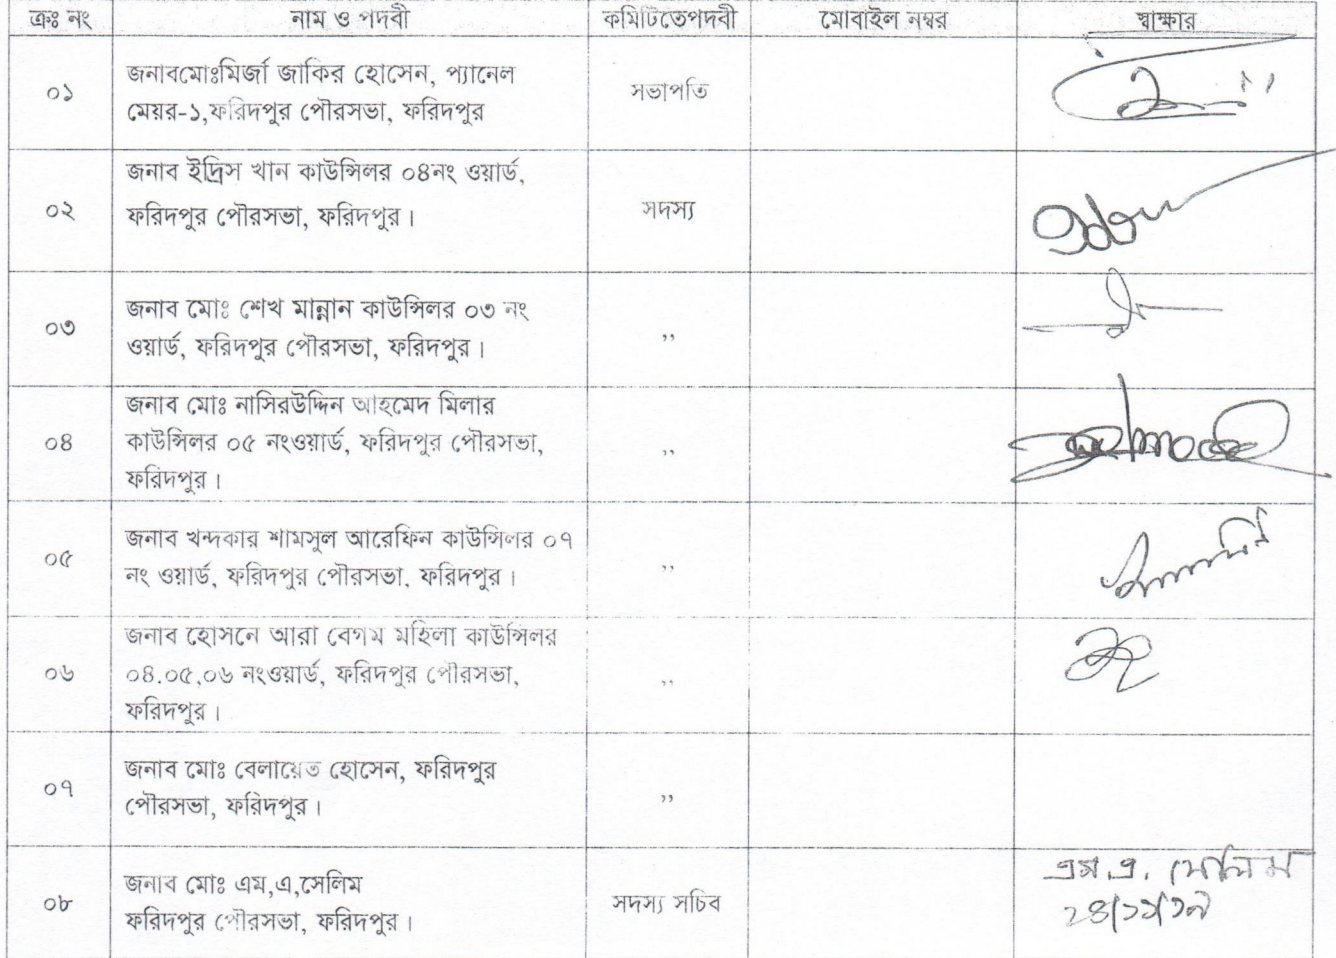 ক্রঃ নং নাম ও পদবী কমিটিতেপদবী মোবাইল নম্বর স্বাক্ষার
০১ জনাবমোঃমির্জা জাকির হোসেন, প্যানেল
মেয়র-১,ফরিদপুর পৌরসভা, ফরিদপুর সভাপতি
০২ জনাব ইদ্রিস খান কাউন্সিলর ০৪নং ওয়ার্ড,
ফরিদপুর পৌরসভা, ফরিদপুর। সদস্য
০৩ জনাব মোঃ শেখ মান্নান কাউন্সিলর ০৩ নং
ওয়ার্ড, ফরিদপুর পৌরসভা, ফরিদপুর। ,,
০৪ জনাব মোঃ নাসিরউদ্দিন আহমেদ মিলার
কাউন্সিলর ০৫ নংওয়ার্ড, ফরিদপুর পৌরসভা, ,,
ফরিদপুর।
০৫ জনাব খন্দকার শামসুল আরেফিন কাউন্সিলর ০৭
নং ওয়ার্ড, ফরিদপুর পৌরসভা, ফরিদপুর। ,,
০৬ জনাব হোসনে আরা বেগম মহিলা কাউন্সিলর
০৪.০৫,০৬ নংওয়ার্ড, ফরিদপুর পৌরসভা, ,,
ফরিদপুর।
০৭ জনাব মোঃ বেলায়েত হোসেন, ফরিদপুর
পৌরসভা, ফরিদপুর। ,,
০৮ জনাব মোঃ এম,এ,সেলিম সদস্য সচিব এম.এ. সেলিম
ফরিদপুর পৌরসভা, ফরিদপুর।